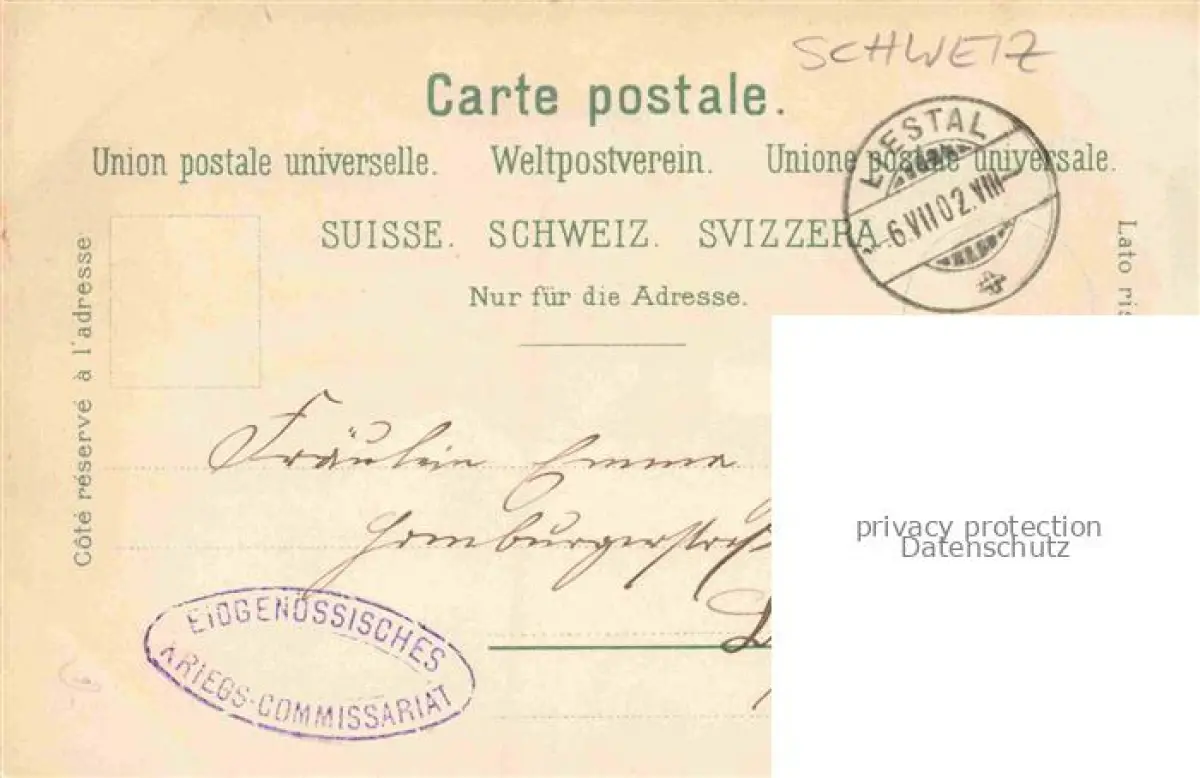 SCHWEIZ
Carte postale.
LIESTAL
Union postale universelle. Weltpostverein. Unione postale universale.
-6.VII 02.VIII-
SUISSE. SCHWEIZ. SVIZZERA
Nur für die Adresse.
Côté réservé à l'adresse
Lato ris
Fräulein Emma
Homburgerstraß
privacy protection
Datenschutz
EIDGENÖSSISCHES
KRIEGS-COMMISSARIAT